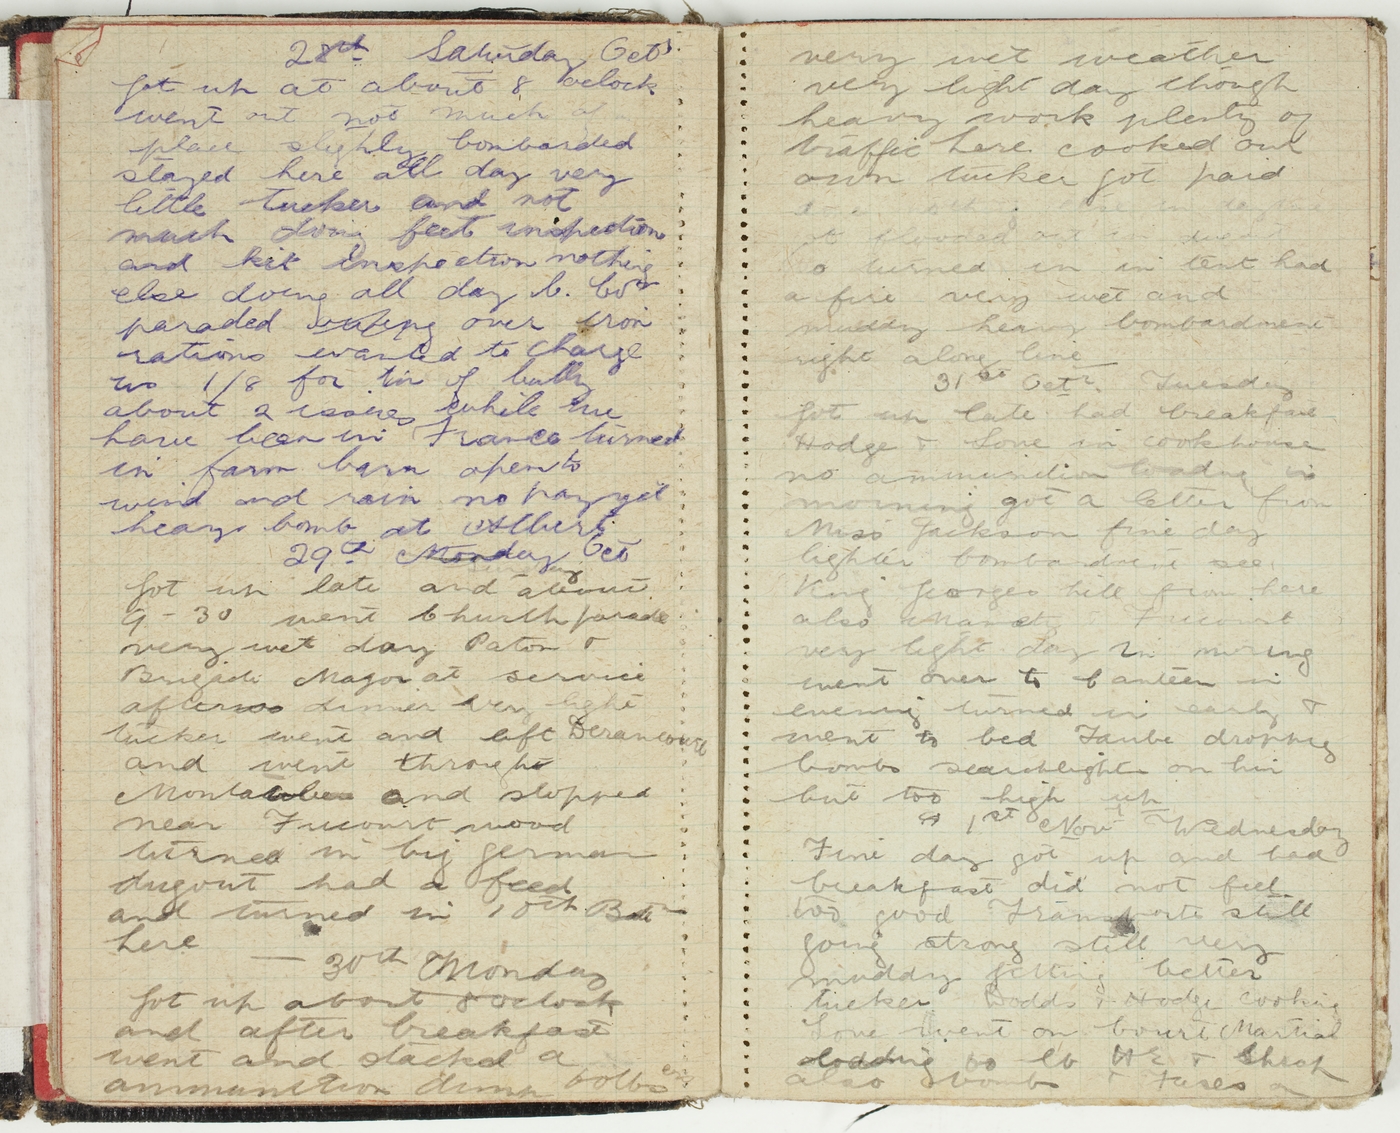 28th Saturday Oct
Got up at about 8 oclock
went out not much of
place slightly bombarded
stayed here all day very
little tucker and not
much doing feet inspection
and kit inspection nothing
else doing all day C. Coy
paraded over iron
rations wanted to charge
us 1/8 for tin of bully
about 2 issues while we
have been in France turned
in farm barn open to
wind and rain no pay yet
heavy bomb at Albert
29th Monday Oct
Got up late and about
9-30 went Church parade
very wet day Paton &
Brigade Major at service
after dinner very light
tucker went and left Derancourt
and went through
Montauben and stopped
near Fricourt wood
turned in big german
dugout had a feed
and turned in 10th Batn
here
— 30th Monday
Got up about 8 oclock
and after breakfast
went and stacked a
ammunition dump
very wet weather
very light day though
heavy work plenty of
traffic here cooked our
own tucker got paid
so turned in in tent had
a fire very wet and
muddy heavy bombardment
right along line
31st Oct. Tuesday
Got up late had breakfast
Hodge & Love in cookhouse
no ammunition loading in
morning got a letter from
Miss Jackson fine day
lighter bombardment see
King Georges hill from here
also Mametz Fricourt
very light day in morning
went over to Canteen in
evening turned in early &
went to bed Taube dropping
bombs searchlights on him
but too high up
1st Nov Wednesday
Fine day got up and had
breakfast did not feel
too good Transports still
going strong still very
muddy getting better
tucker Dodds & Hodge cooking
Love went on Court Martial
loading 60 lb H E & Shrap
also bombs & fuses